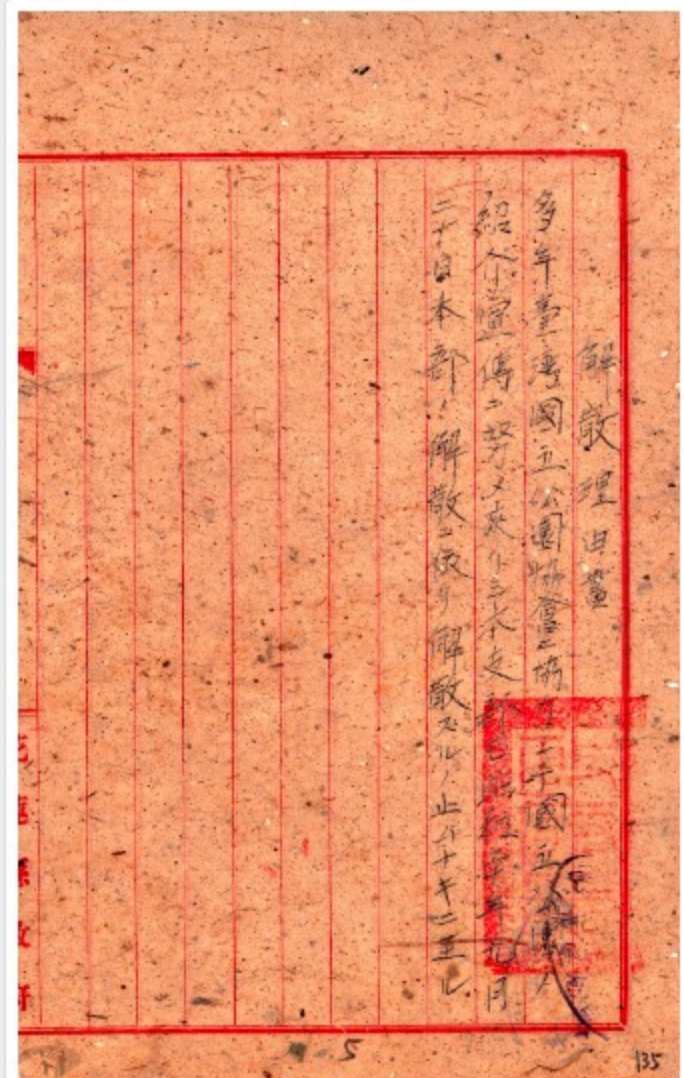 解散理由書
多年臺灣國立公園協會ニ協力シ國立公園ノ
紹介宣傳ニ努メ來リシ本支部モ 年九月
二十日本部ノ解散ニ依リ解散スルノ止ムナキニ至ル
花蓮縣政府
5
135